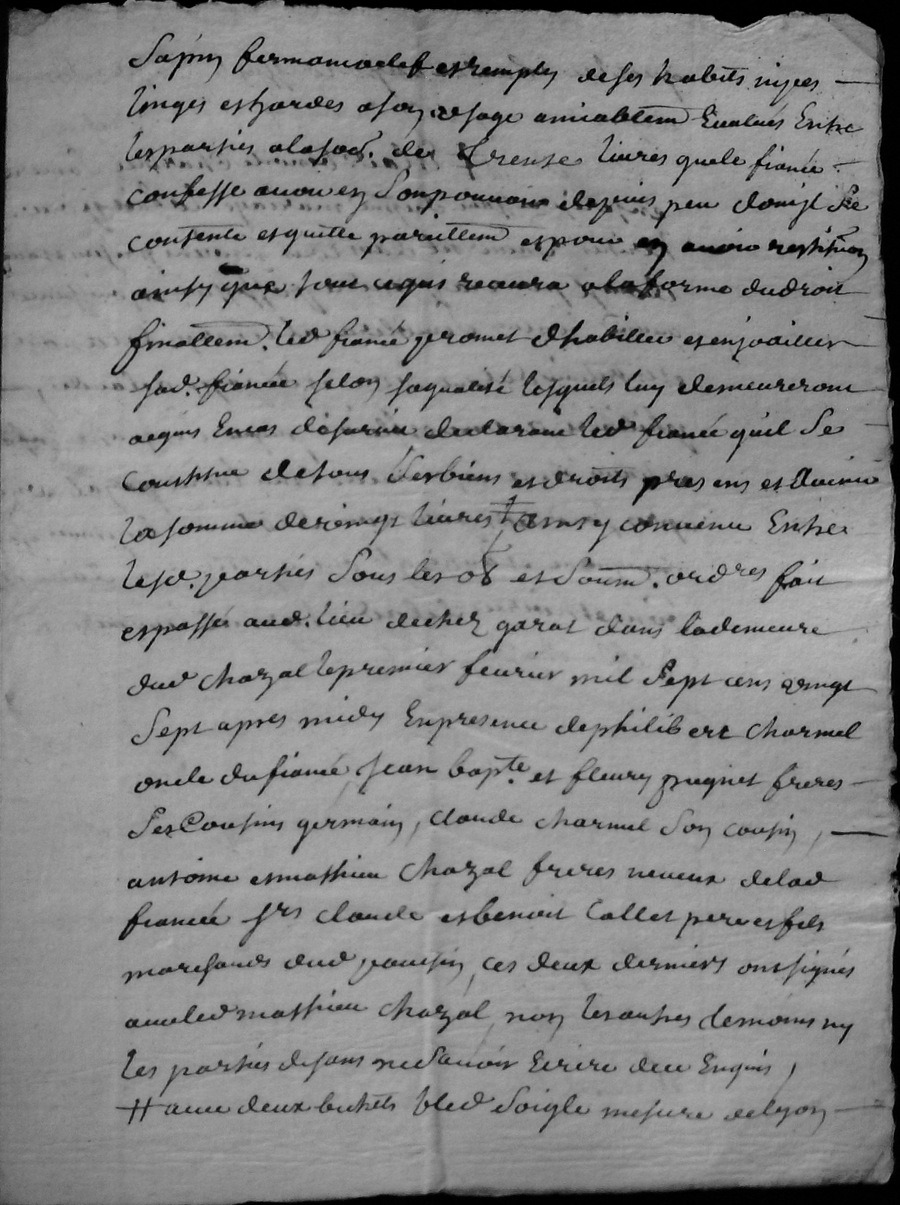 Sapin fermant a clef et remply de ses habits nipes
linges et hardes a son usage amiablem Evalués Entre
les parties a la so͞e. de Trente livres que le fiancé
confesse avoir en Son pouvoir depuis peu dont il Se
contente et quitte pareillem et pour en avoir restitu͞on
ainsy que sera requis recoura a la forme du droit
finallem. led fiancé promet dhabiller et enjoailler
sad. fiancée selon sa qualité lesquels luy demeureront
acquis En cas de survie declarant led fiancé quil Se
constitue de tous Ses biens et droits presens et avenir
la somme de vingt livres ╫ ainsy convenu Entre
lesd. parties Sous les ob et Soum. ord.res fait
et passé aud. lieu de chez garat dans la demeure
dud chazal le premier fevrier mil Sept cens vingt
Sept apres midy En presence de philibert charmel
oncle du fiancé, jean bapte. et fleury pugnet freres
Ses Cousins germain, claude charmel Son cousin,
antoine et mathieu chazal freres neveux de lad
fiancée srs claude et benoit Collet pere et fils
marchands dud, ces deux derniers ont signés
avec led mathieu chazal, non les autres temoins ny
les parties disans ne Savoir Ecrire de ce Enquis,
╫ avec deux bichets bled Soigle mesure de lyon